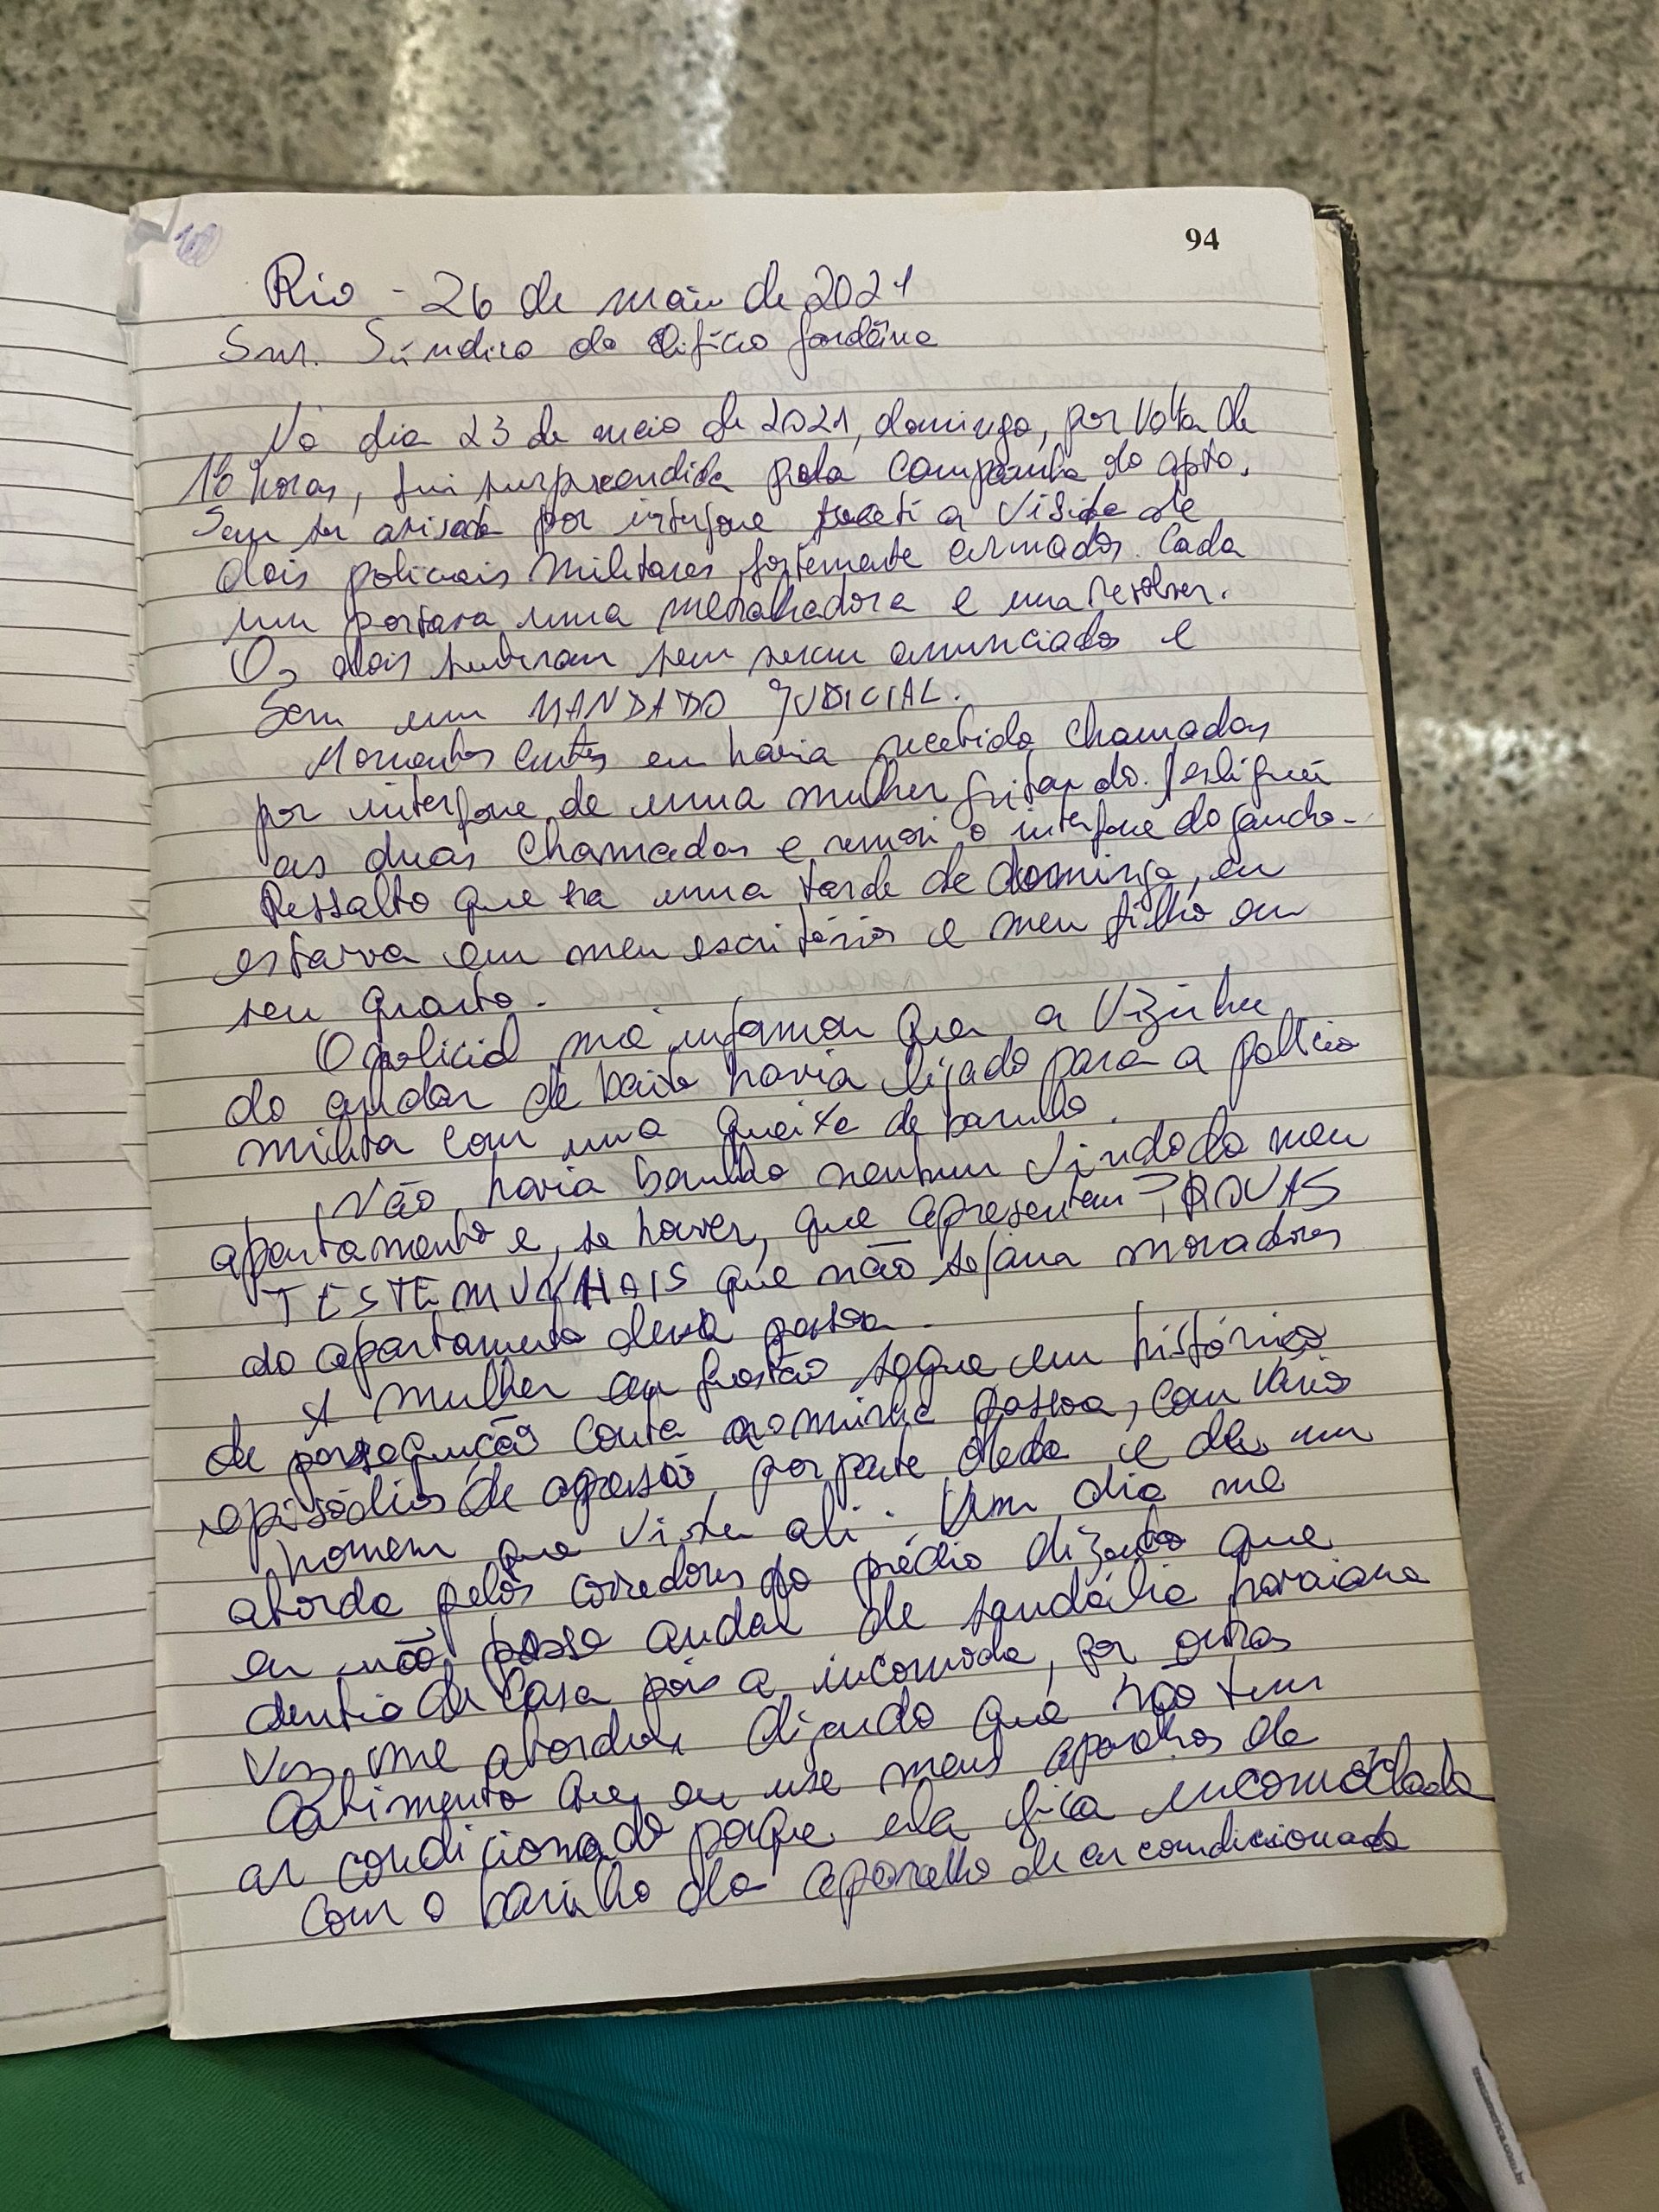 94
Rio - 26 de maio de 2021
Snr. Síndico do Edifício Jordânia
No dia 23 de maio de 2021, domingo, por volta de
16 horas, fui surpreendida pela campainha do apto.
Sem ser avisada por interfone recebi a visita de
dois policiais militares fortemente armados. Cada
um portava uma metralhadora e um revolver.
Os dois subiram sem serem anunciados e
sem um MANDADO JUDICIAL.
Momentos antes eu havia recebido chamadas
por interfone de uma mulher gritando. Desliguei
as duas chamadas e removi o interfone do gancho.
Ressalto que era uma tarde de domingo, eu
estava em meu escritório e meu filho em
seu quarto.
O policial me informou que a vizinha
do andar de baixo havia ligado para a polícia
milita com uma queixa de barulho.
Não havia barulho nenhum vindo do meu
apartamento e, se houver, que apresentem PROVAS
TESTEMUNHAIS que não sejam moradores
do apartamento dessa pessoa.
A mulher em questão segue em histórico
de perseguição contra a minha pessoa, com vários
episódios de agressão por parte dela e de um
homem que vive ali. Um dia me
aborda pelos corredores do prédio dizendo que
eu não posso andar de sandália havaiana
dentro de casa pois a incomoda, por outras
vez me aborda, dizendo que não tem
cabimento que eu use meus aparelhos de
ar condicionado porque ela fica incomodada
com o barulho do aparelho de ar condicionado